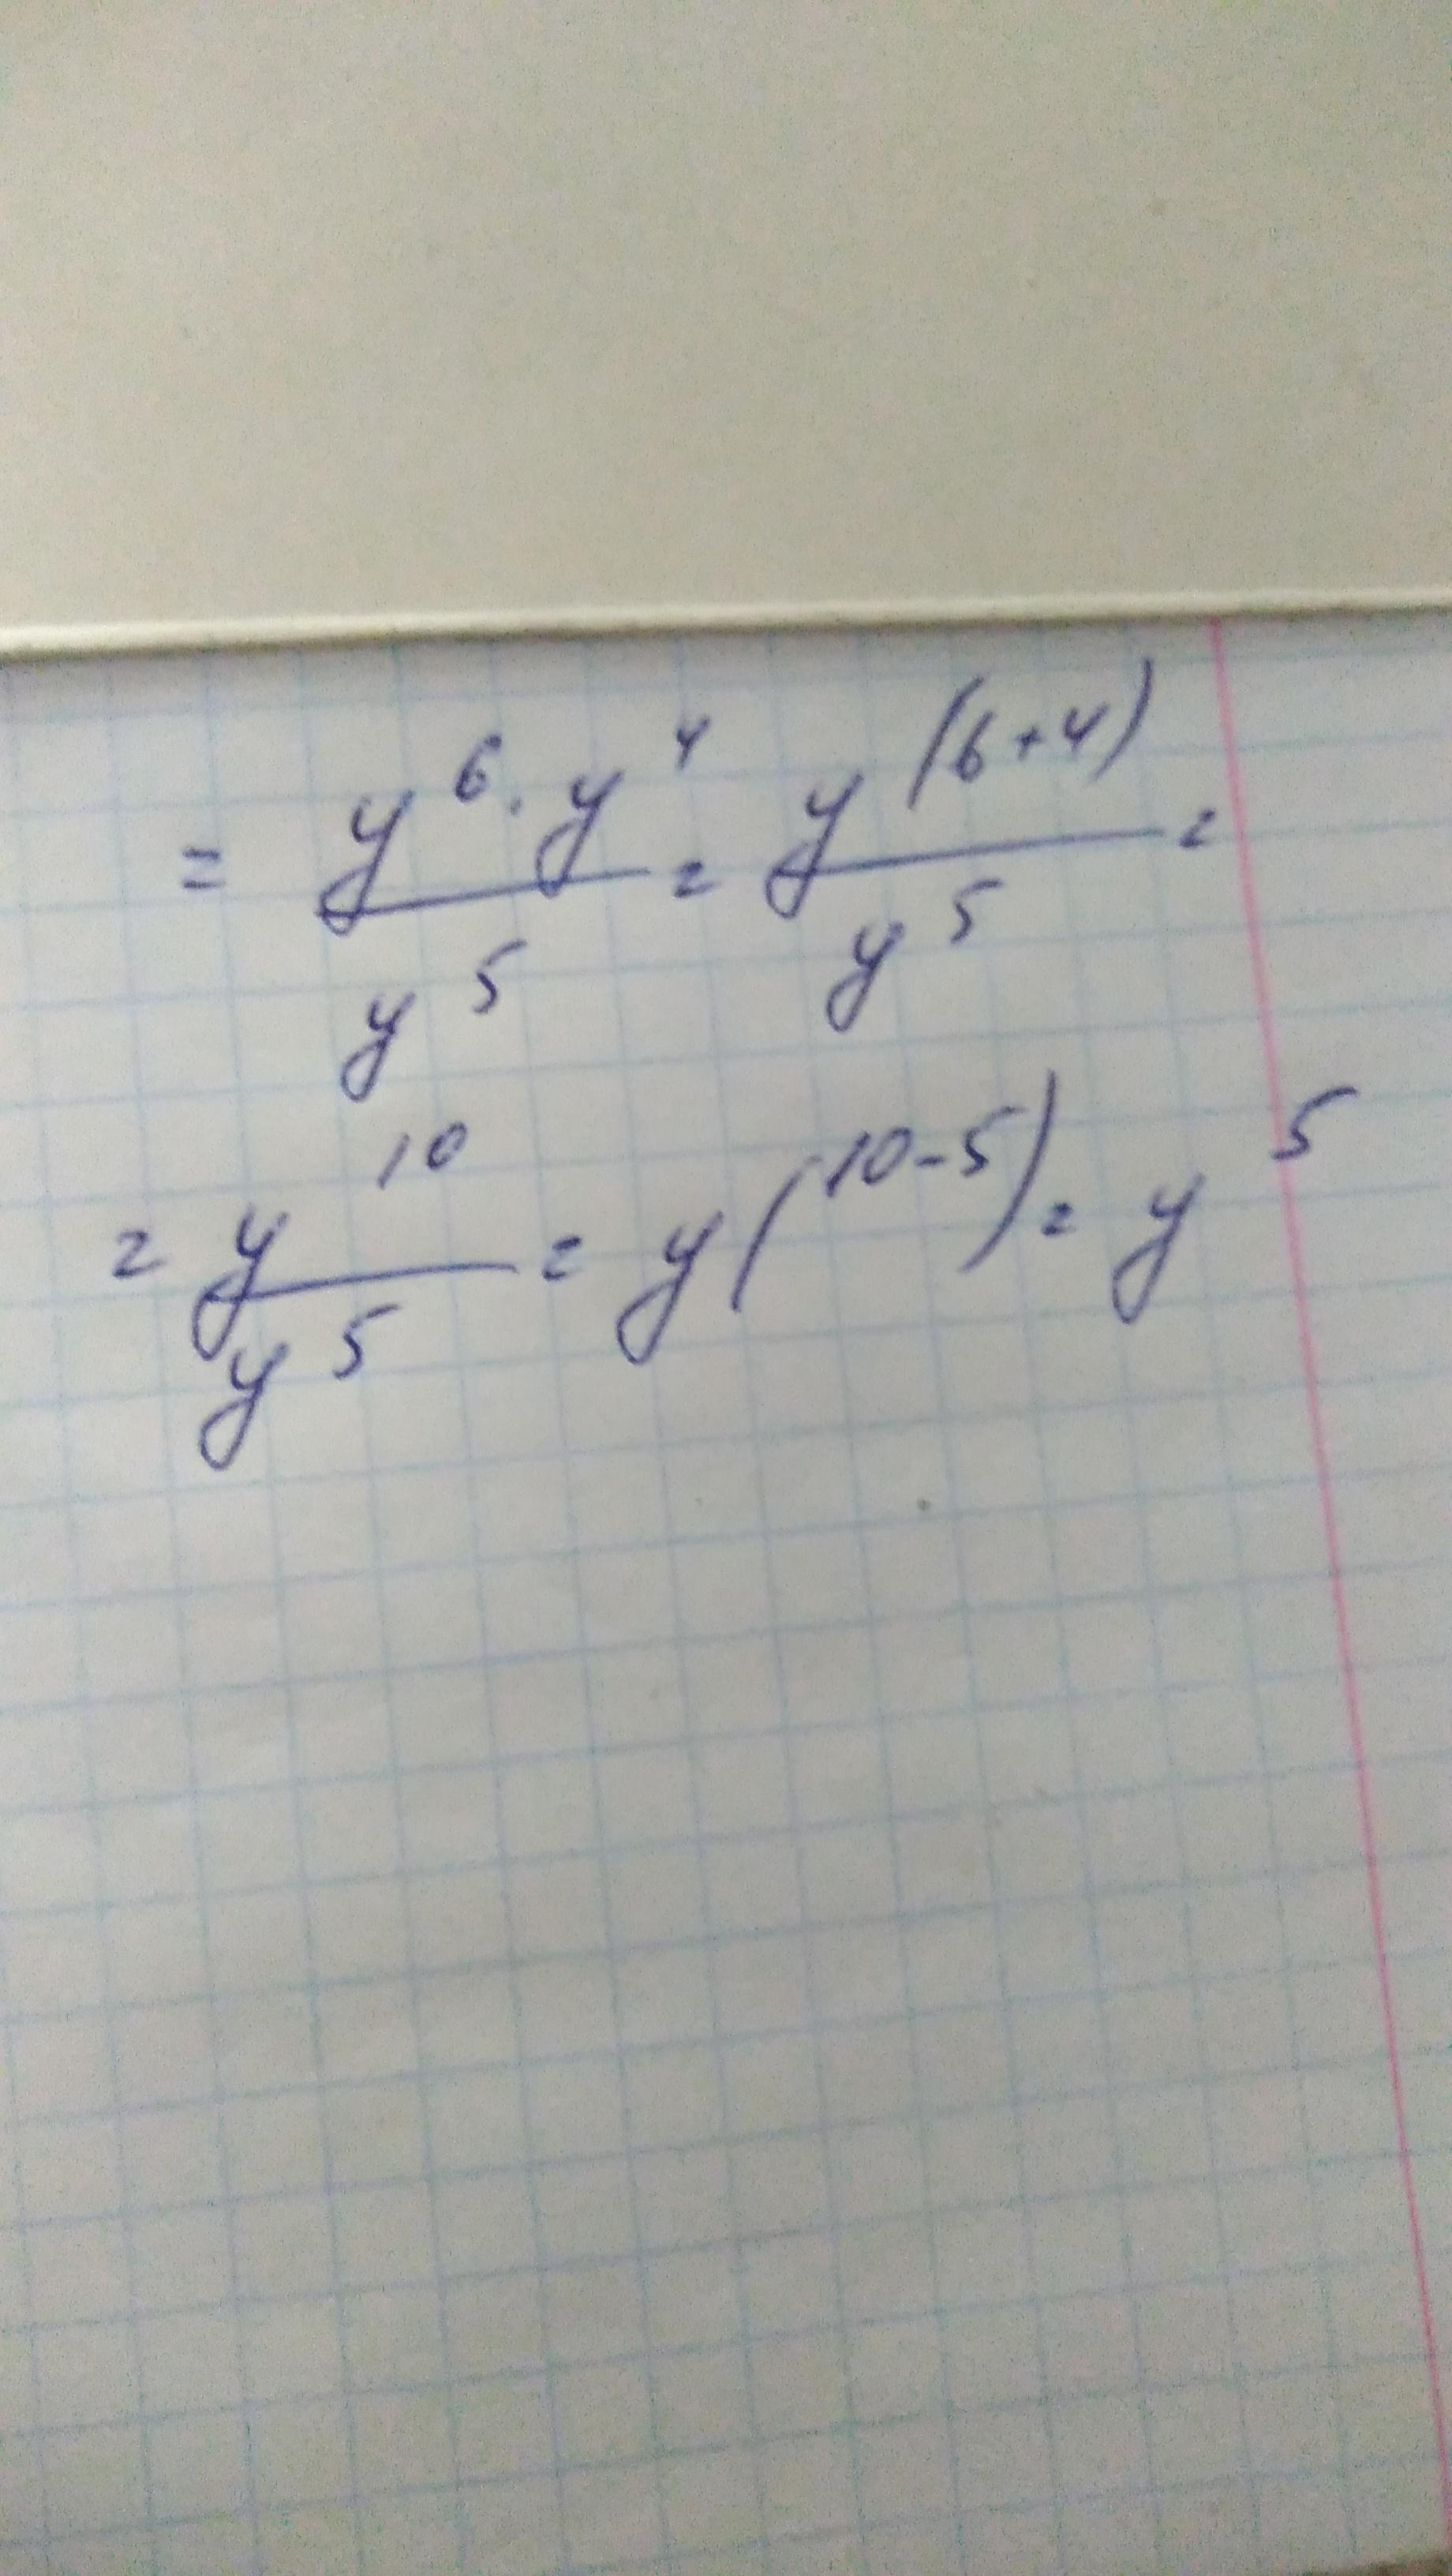 = y^6 · y^4 / y^5 = y^(6+4) / y^5 =
= y^10 / y^5 = y^(10-5) = y^5